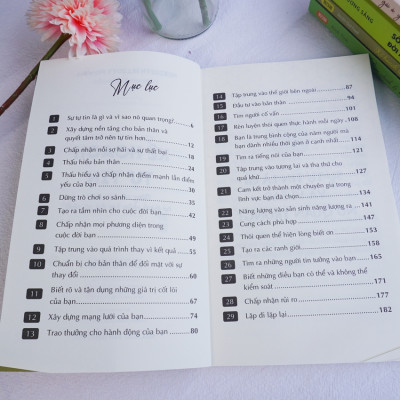 Mục lục
1 Sự tự tin là gì và vì sao nó quan trọng? 6
2 Xây dựng nền tảng cho bản thân và
quyết tâm trở nên tự tin 12
3 Chấp nhận nỗi sợ hãi và sự thất bại 18
4 Thấu hiểu bản thân 24
5 Thấu hiểu và chấp nhận điểm mạnh lẫn điểm
yếu của bạn 30
6 Dừng trò chơi so sánh 35
7 Tạo ra tầm nhìn cho cuộc đời bạn 42
8 Chấp nhận mọi phương diện trong
cuộc đời bạn 49
9 Tập trung vào quá trình thay vì kết quả 55
10 Chuẩn bị cho bản thân để đối mặt với sự
thay đổi 60
11 Biết rõ và tận dụng những giá trị cốt lõi
của bạn 67
12 Xây dựng mạng lưới của bạn 74
13 Trao thưởng cho hành động của bạn 80
14 Tập trung vào thế giới bên ngoài 87
15 Đầu tư vào bản thân 94
16 Tìm người cố vấn
17 Rèn luyện thói quen thực hành mỗi ngày 108
18 Bạn là trung bình cộng của năm người mà
bạn dành nhiều thời gian ở cạnh nhất
19 Tìm ra tiếng nói của bạn
20 Tập trung vào tương lai và tha thứ cho
quá khứ 127
21 Cam kết trở thành một chuyên gia trong
lĩnh vực bạn đã chọn 134
22 Năng lượng vào sản sinh năng lượng ra 141
23 Cung cách phù hợp 147
24 Thói quen thể hiện lòng biết ơn 153
25 Tạo ra các ranh giới 158
26 Tìm ra những người tin tưởng vào bạn 165
27 Biết những điều bạn có thể và không thể
kiểm soát 171
28 Chấp nhận rủi ro 177
29 Lặp đi lặp lại 182